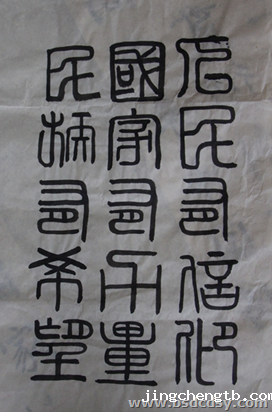 人民有信仰
國家有力量
民族有希望
jingchengtb.com
www.bsdcdsy.com